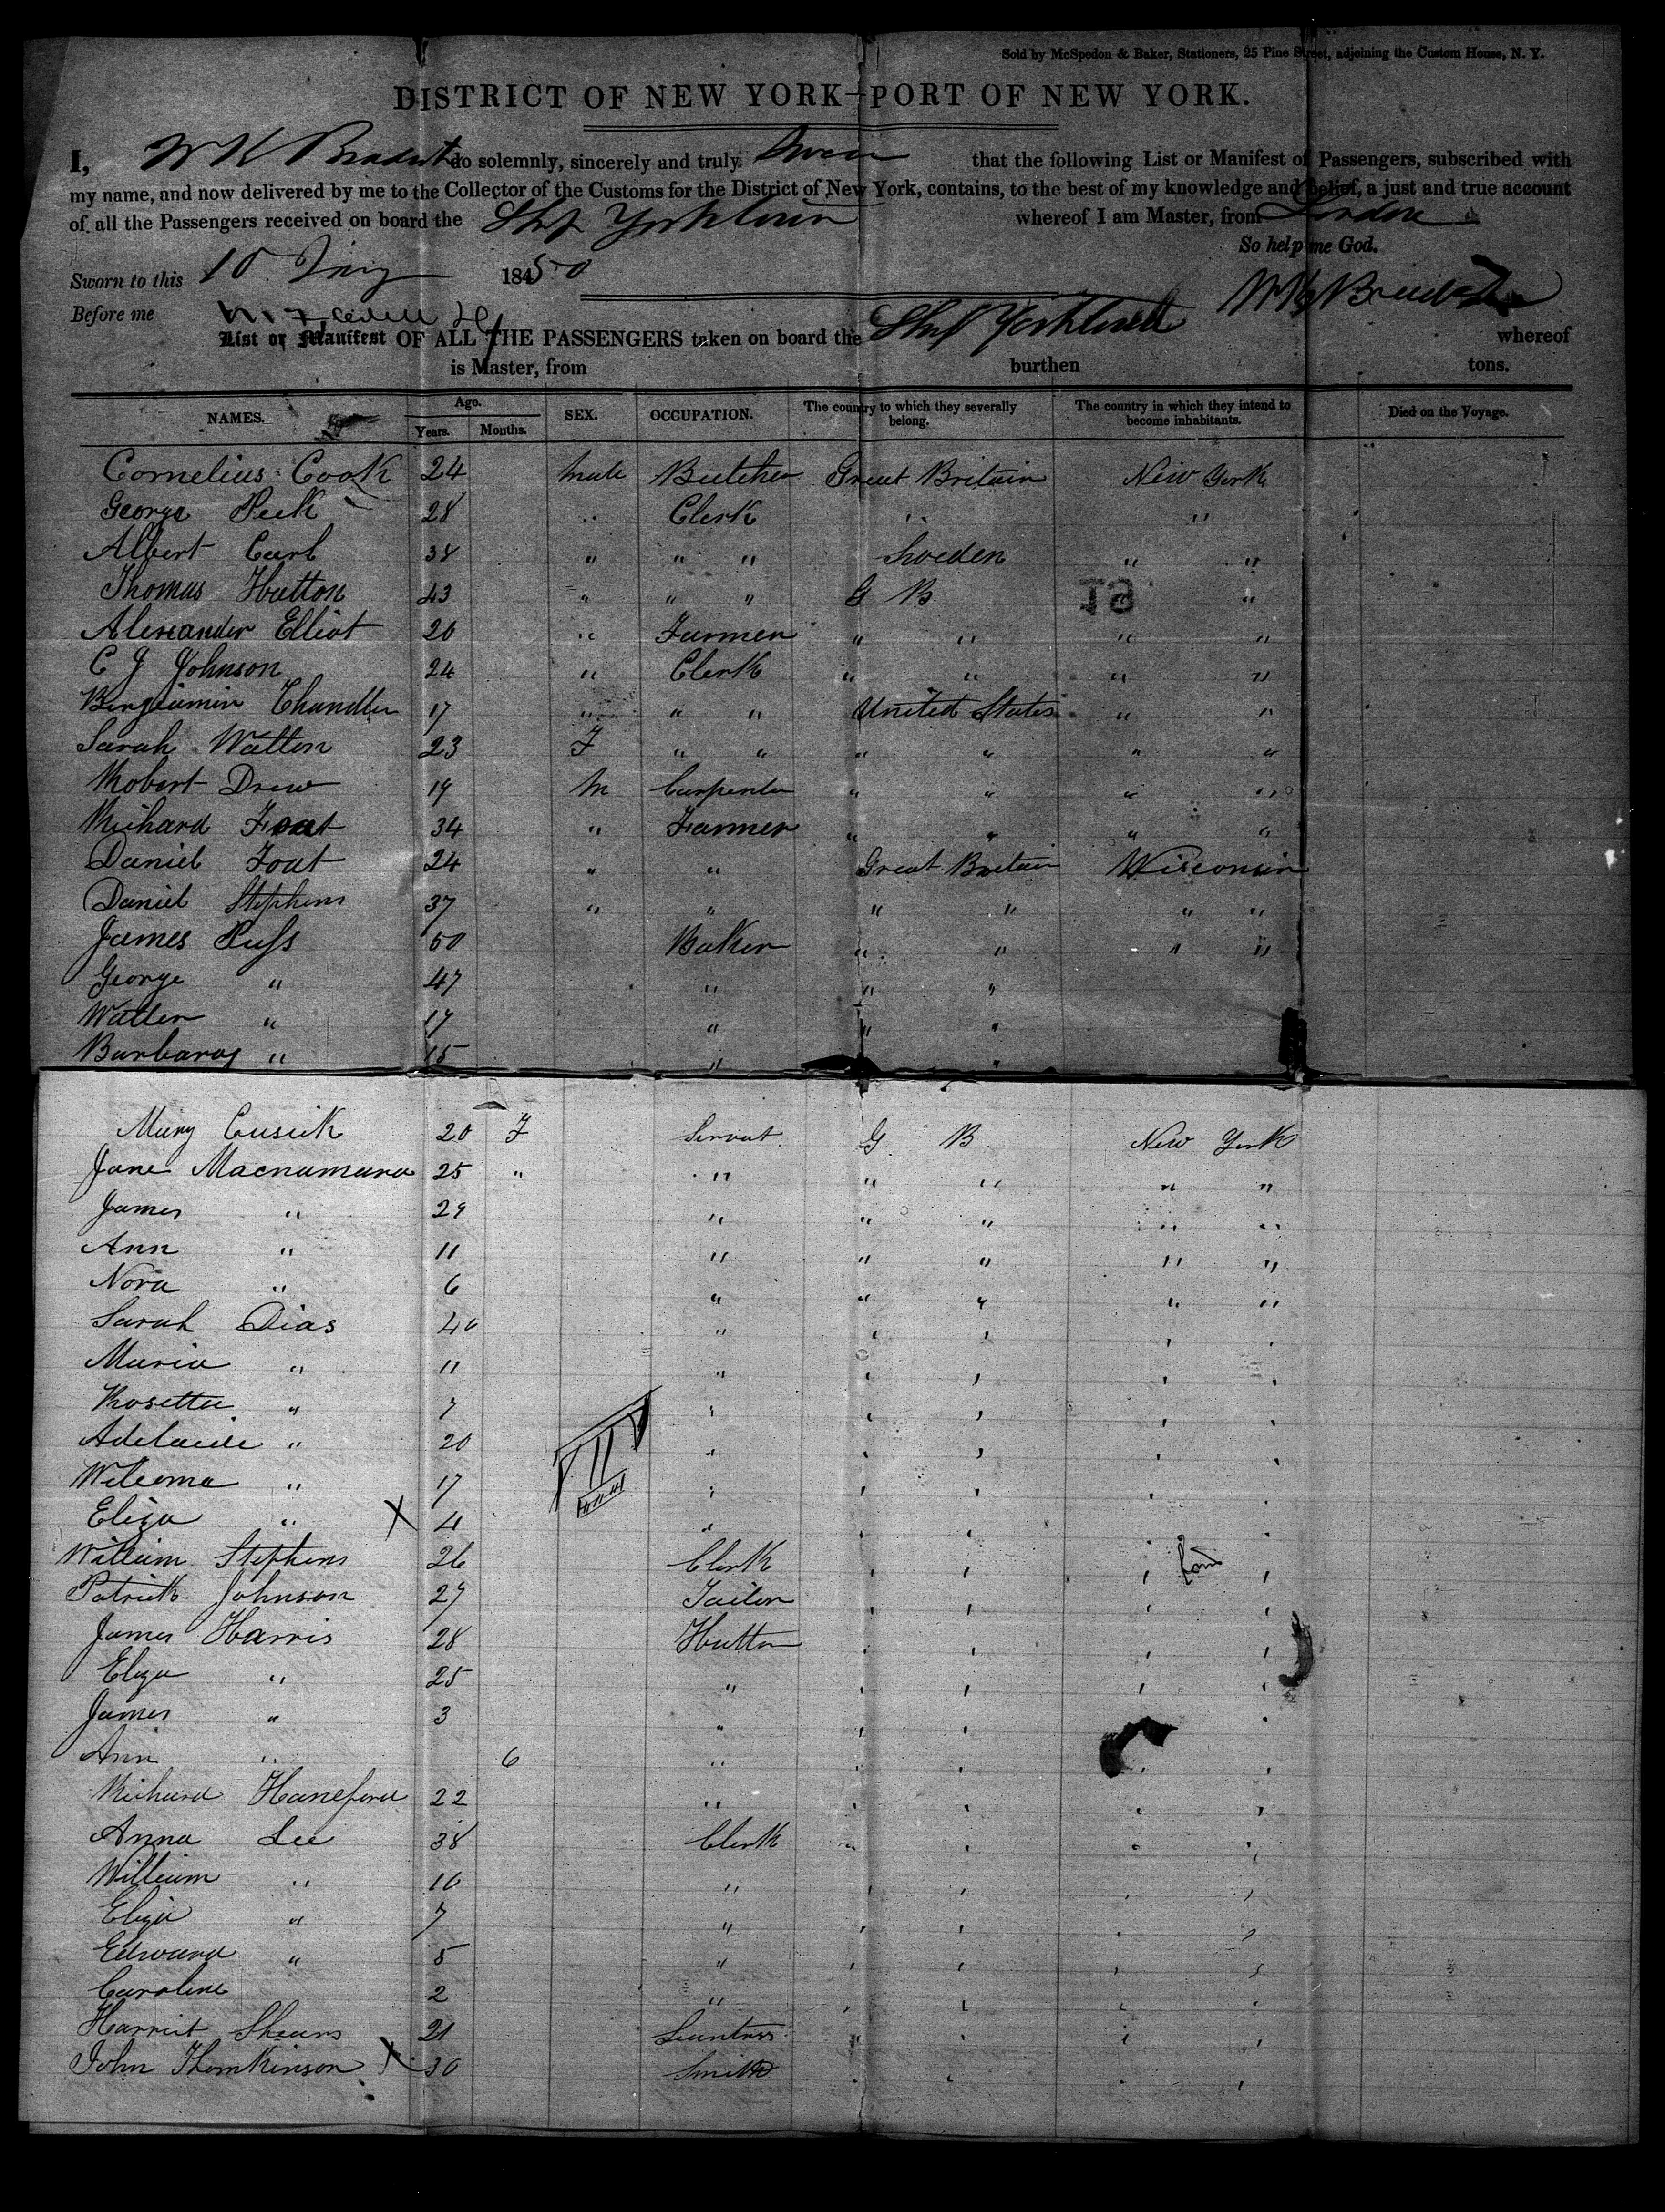 Sold by McSpedon & Baker, Stationers, 25 Pine Street, adjoining the Custom House, N. Y.
DISTRICT OF NEW YORK—PORT OF NEW YORK.
I, W H do solemnly, sincerely and truly that the following List or Manifest of Passengers, subscribed with
my name, and now delivered by me to the Collector of the Customs for the District of New York, contains, to the best of my knowledge and belief, a just and true account
of all the Passengers received on board the Ship Yorktown whereof I am Master, from London
So help me God.
Sworn to this 10 18450
Before me
List or Manifest OF ALL THE PASSENGERS taken on board the Ship Yorktown whereof
is Master, from burthen tons.
NAMES. Age. Years. Months. SEX. OCCUPATION. The country to which they severally belong. The country in which they intend to become inhabitants. Died on the Voyage.
Cornelius Cook 24 Male Butcher Great Britain New York
George Peek 28 " Clerk " "
Albert Carl 38 " " " Sweden " "
Thomas Hutton 43 " " " G B " "
Alexander Elliot 20 " Farmer " " " "
C J Johnson 24 " Clerk " " " "
Benjiamin Chandler 17 " " " United States " "
Sarah Walton 23 F " " " " " "
Robert Drew 19 M Carpenter " " " "
Richard Foat 34 " Farmer " " " "
Daniel Foat 24 " " Great Britain Wisconsin
Daniel Stephens 37 " " " " " "
James Puss 50 Baker " " " "
George " 47 " " "
Walter " 17 " " "
Barbaray " 15 " "
Mary Cusick 20 F Servant G B New York
Jane Macnamara 25 " " " " " "
James " 29 " " " " "
Ann " 11 " " " " "
Nora " 6 " " " " "
Sarah Dias 40 " " " " "
Maria " 11 " " " " "
Rosetta " 7 " " " " "
Adelaide " 20 " " " "
" 17 " " " " "
Eliza " X 4 " " " "
William Stephens 26 Clerk " " " "
Patrick Johnson 27 Tailor " " " "
James Harris 28 Hatter " " " "
Eliza " 25 " " " " "
James " 3 " " " "
Ann " 6 " " " " "
Richard Haneford 22 " " " " "
Anna Lee 38 Clerk " " " "
William " 10 " " " " "
Eliza " 7 " " " " "
Edward " 5 " " " " "
Caroline 2 " " " " "
Harriet Shears 21 " " " "
John Thomkinson X 30 Smith " "